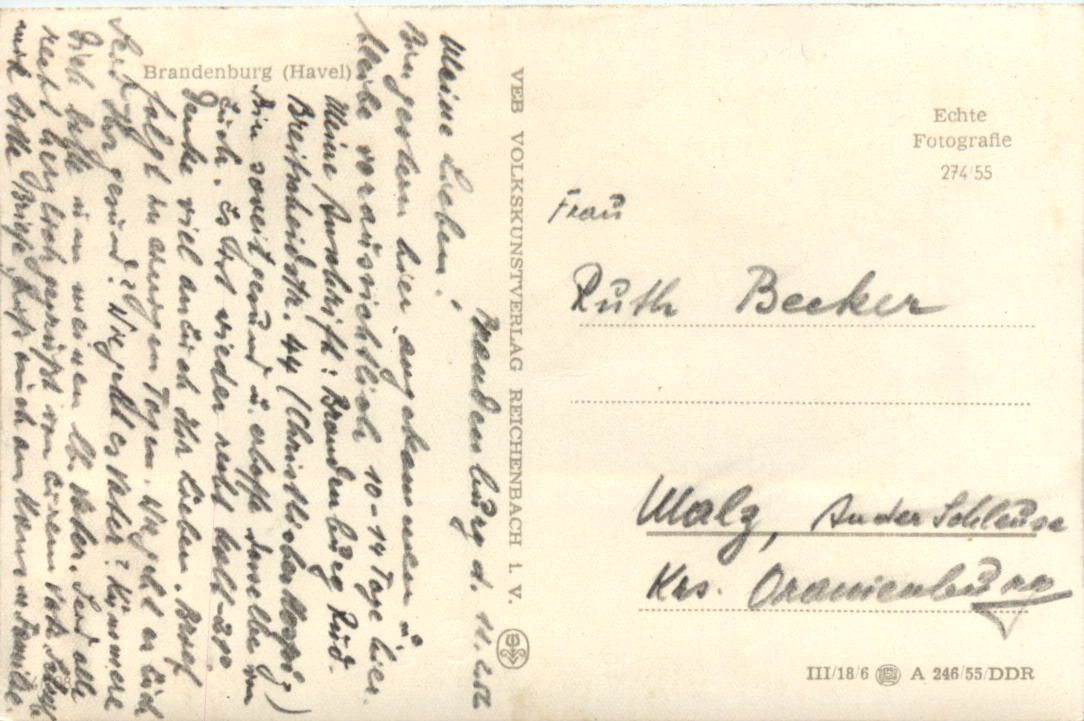 Brandenburg (Havel)
Brandenburg d. 11.2.56
Meine Lieben!
Bin gestern hier angekommen u.
bleibe voraussichtlich 10-14 Tage hier.
Meine Anschrift: Brandenburg Rud.
Breitscheidstr. 44 (Christliches Hospiz)
Bin soweit gesund u. erhoffe dasselbe von
Euch. Es ist wieder recht kalt -20°
Denke viel an Euch Ihr Lieben. Brief
folgt in einigen Tagen. Wie geht es Euch
Seid Ihr gesund? Wie geht es Vater? Kümmere
Dich bitte um meinen lb. Vater. Seid alle
recht herzlich gegrüßt von Eurem Vati.
mir bitte Briefe. Grüß mich am u. Familie.
VEB VOLKSKUNSTVERLAG REICHENBACH i. V.
Echte
Fotografie
274/55
Frau
Ruth Becker
Malz, An der Schleuse
Krs. Oranienburg
III/18/6 A 246/55/DDR